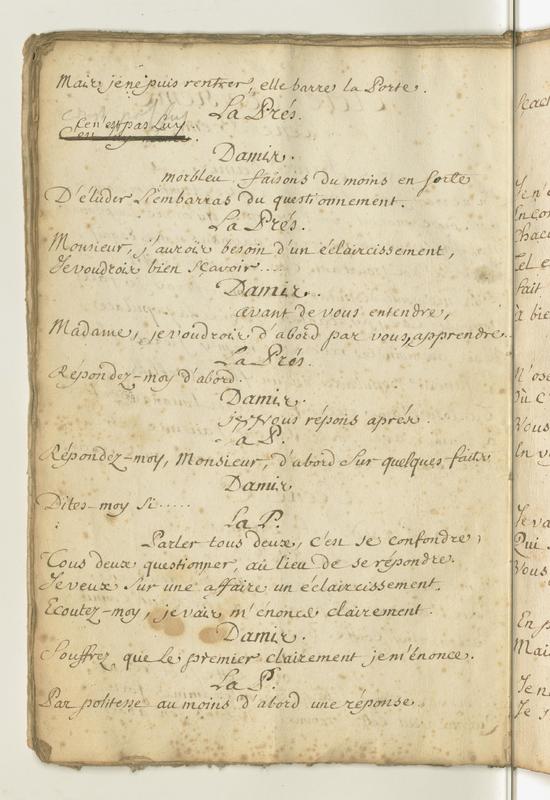 Mais je ne puis rentrer, elle barre la Porte.
La Prés.
Ce n'est pas Luy
Damis.
morbleu, faisons du moins en sorte
D'éluder l'embarras du questionnement.
La Prés.
Monsieur, j'aurois besoin d'un éclaircissement,
Je voudrois bien sçavoir...
Damis.
avant de vous entendre,
Madame, je voudrois d'abord par vous apprendre..
La Prés.
Répondez-moy d'abord.
Damis.
je vous répons aprés.
La P.
Répondez-moy, Monsieur, d'abord sur quelques faits
Damis
Dites-moy si.....
La P.
Parler tous deux, c'en se confondre,
Tous deux questionner, au lieu de se répondre.
Je veux sur une affaire un éclaircissement.
Ecoutez-moy, je vais m'énoncé clairement.
Damis.
Souffrez que le premier clairement je m'énonce.
La P.
Par politesse au moins d'abord une réponse